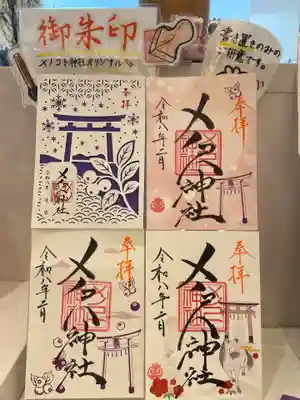 御朱印
メノコト神社オリジナル
書き置きのみの
用意です。
奉拝
メノコト神社
奉拝
令和八年二月
メノコト神社
奉拝
令和八年二月
メノコト神社
奉拝
令和八年二月
メノコト神社